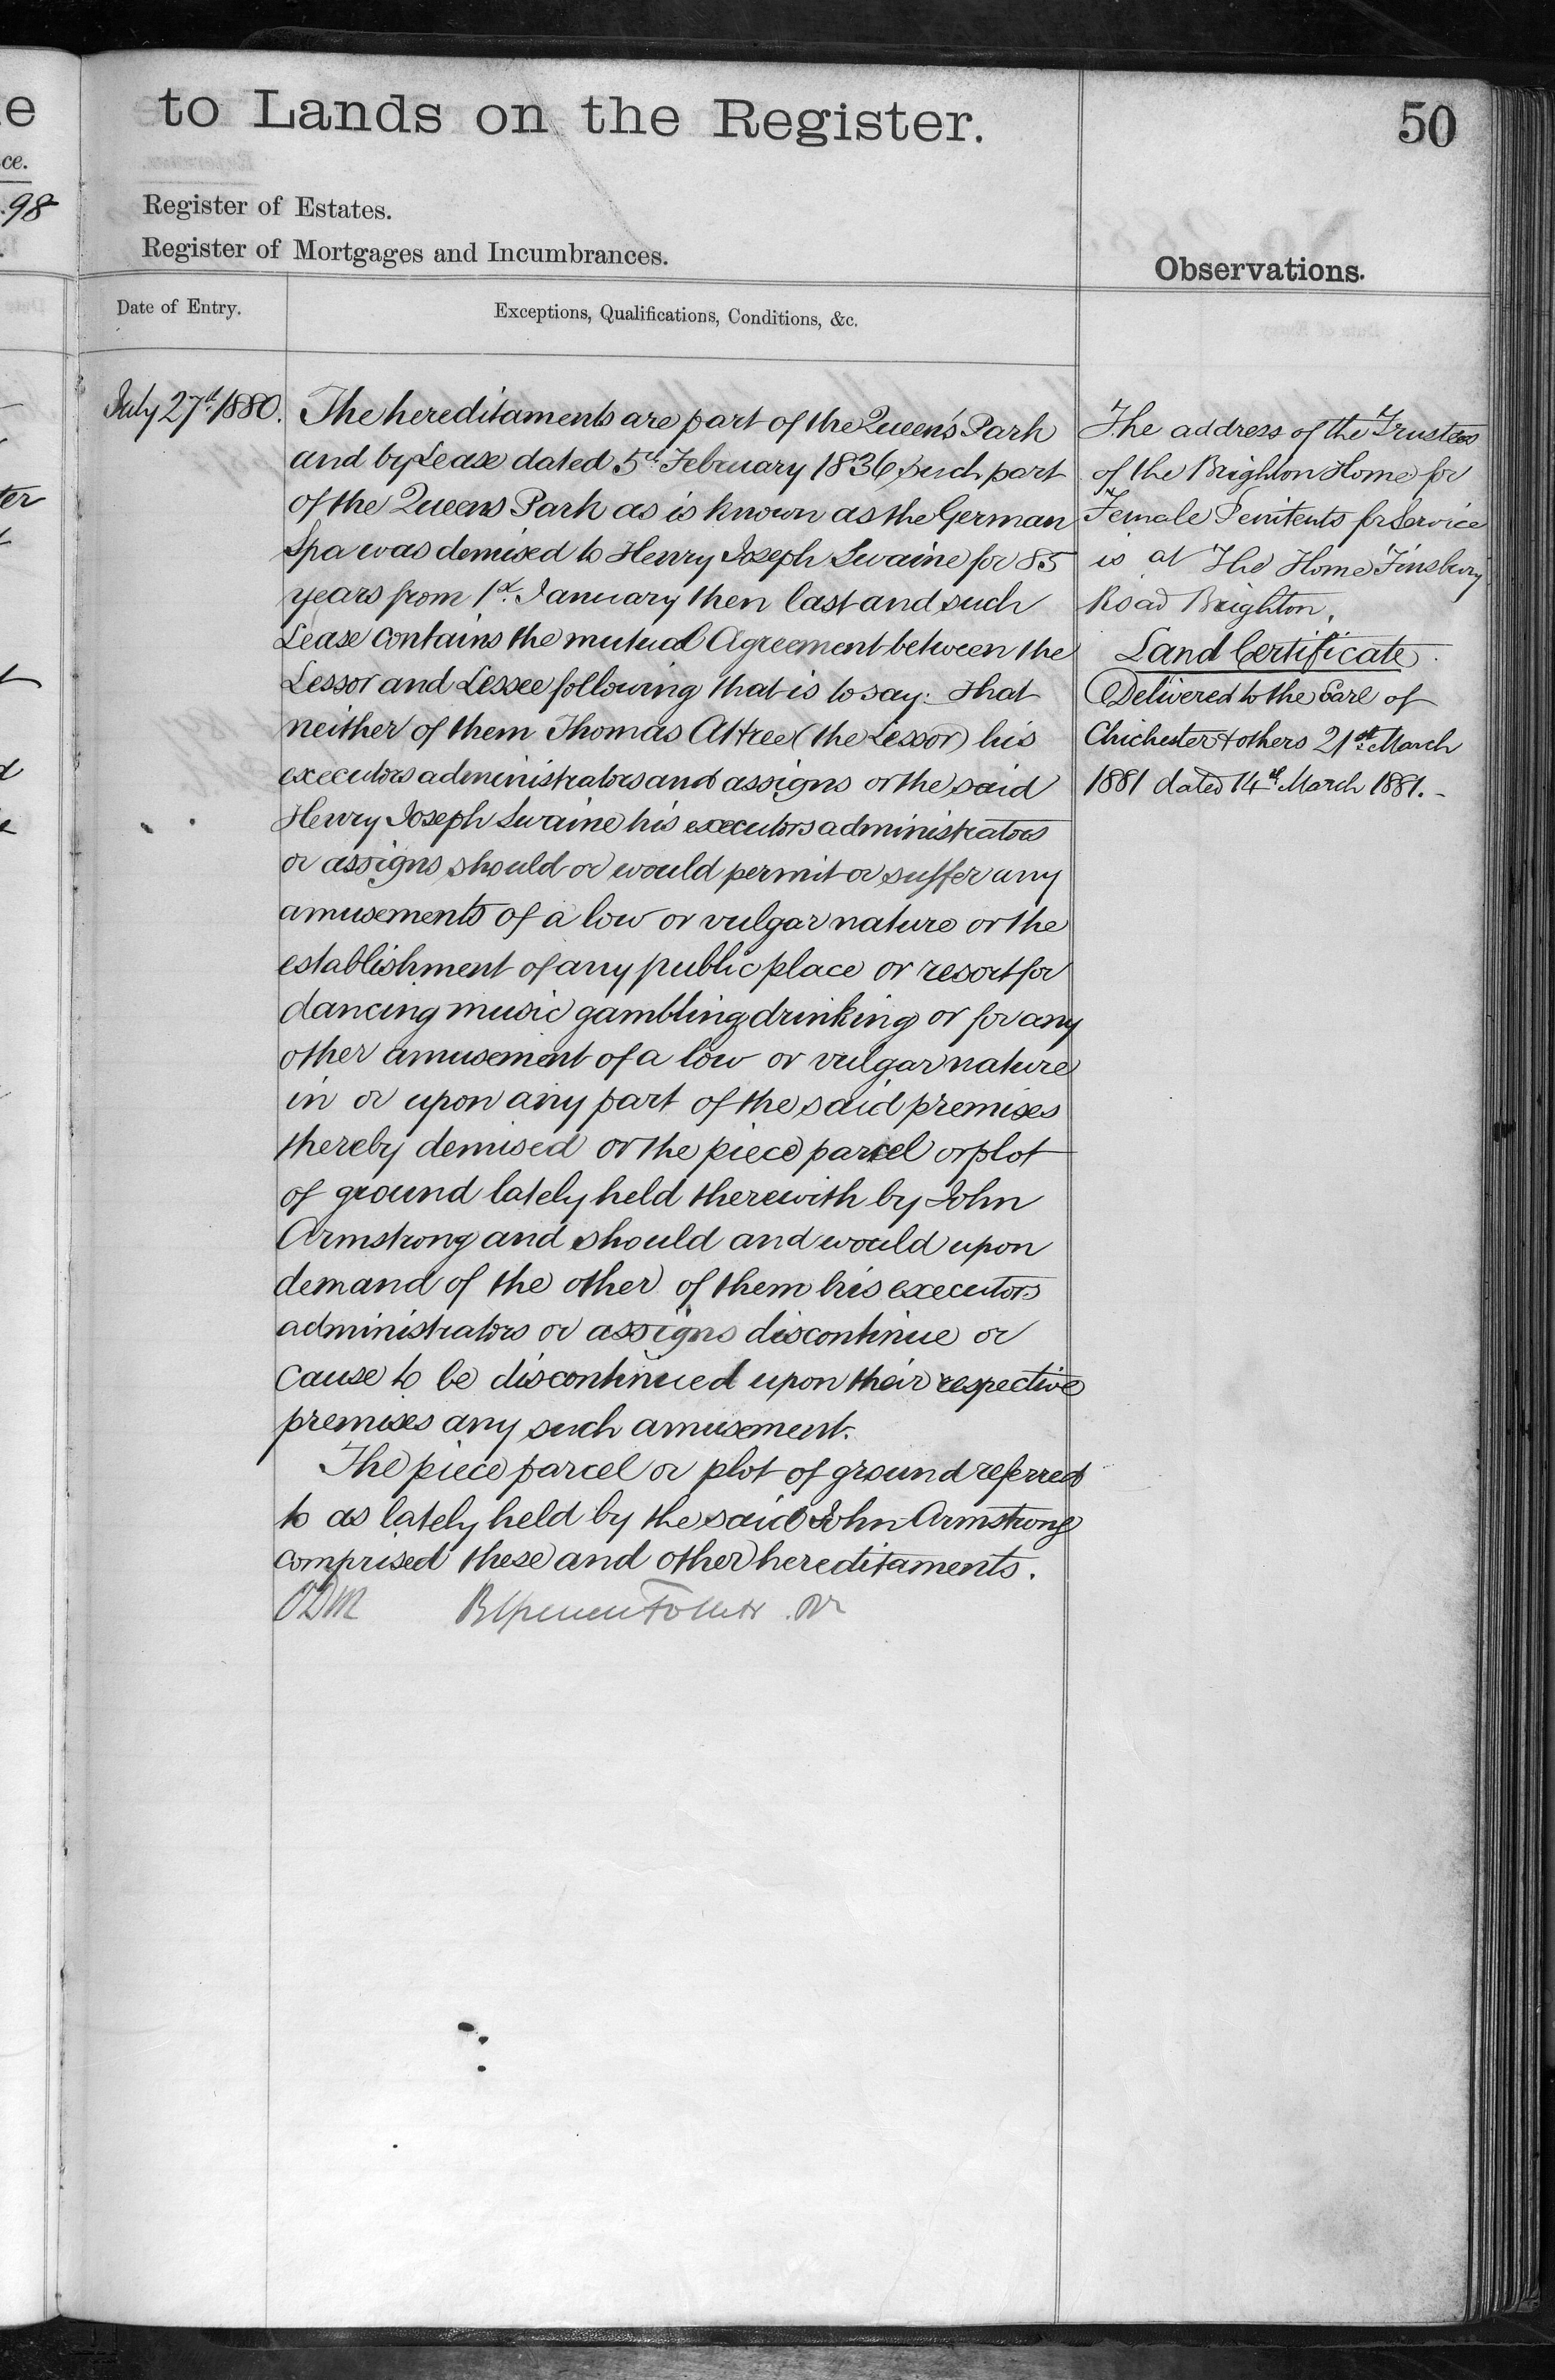 to Lands on the Register.
50
Register of Estates.
Register of Mortgages and Incumbrances.
Observations.
Date of Entry.
Exceptions, Qualifications, Conditions, &c.
July 27th 1880.
The hereditaments are part of the Queen's Park
and by Lease dated 5th February 1836 such part
of the Queens Park as is known as the German
Spa was demised to Henry Joseph Swaine for 85
years from 1st January then last and such
Lease contains the mutual Agreement between the
Lessor and Lessee following that is to say: That
neither of them Thomas Attree (the Lessor) his
executors administrators and assigns or the said
Henry Joseph Swaine his executors administrators
or assigns should or would permit or suffer any
amusements of a low or vulgar nature or the
establishment of any public place or resort for
dancing music gambling drinking or for any
other amusement of a low or vulgar nature
in or upon any part of the said premises
thereby demised or the piece parcel or plot
of ground lately held therewith by John
Armstrong and should and would upon
demand of the other of them his executors
administrators or assigns discontinue or
cause to be discontinued upon their respective
premises any such amusement.
The piece parcel or plot of ground referred
to as lately held by the said John Armstrong
comprised these and other hereditaments.
The address of the Trustees
of the Brighton Home for
Female Penitents for Service
is at The Home Finsbury
Road Brighton.
Land Certificate
Delivered to the Earl of
Chichester & others 21st March
1881 dated 14th March 1881.-
e
ce.
98
ter